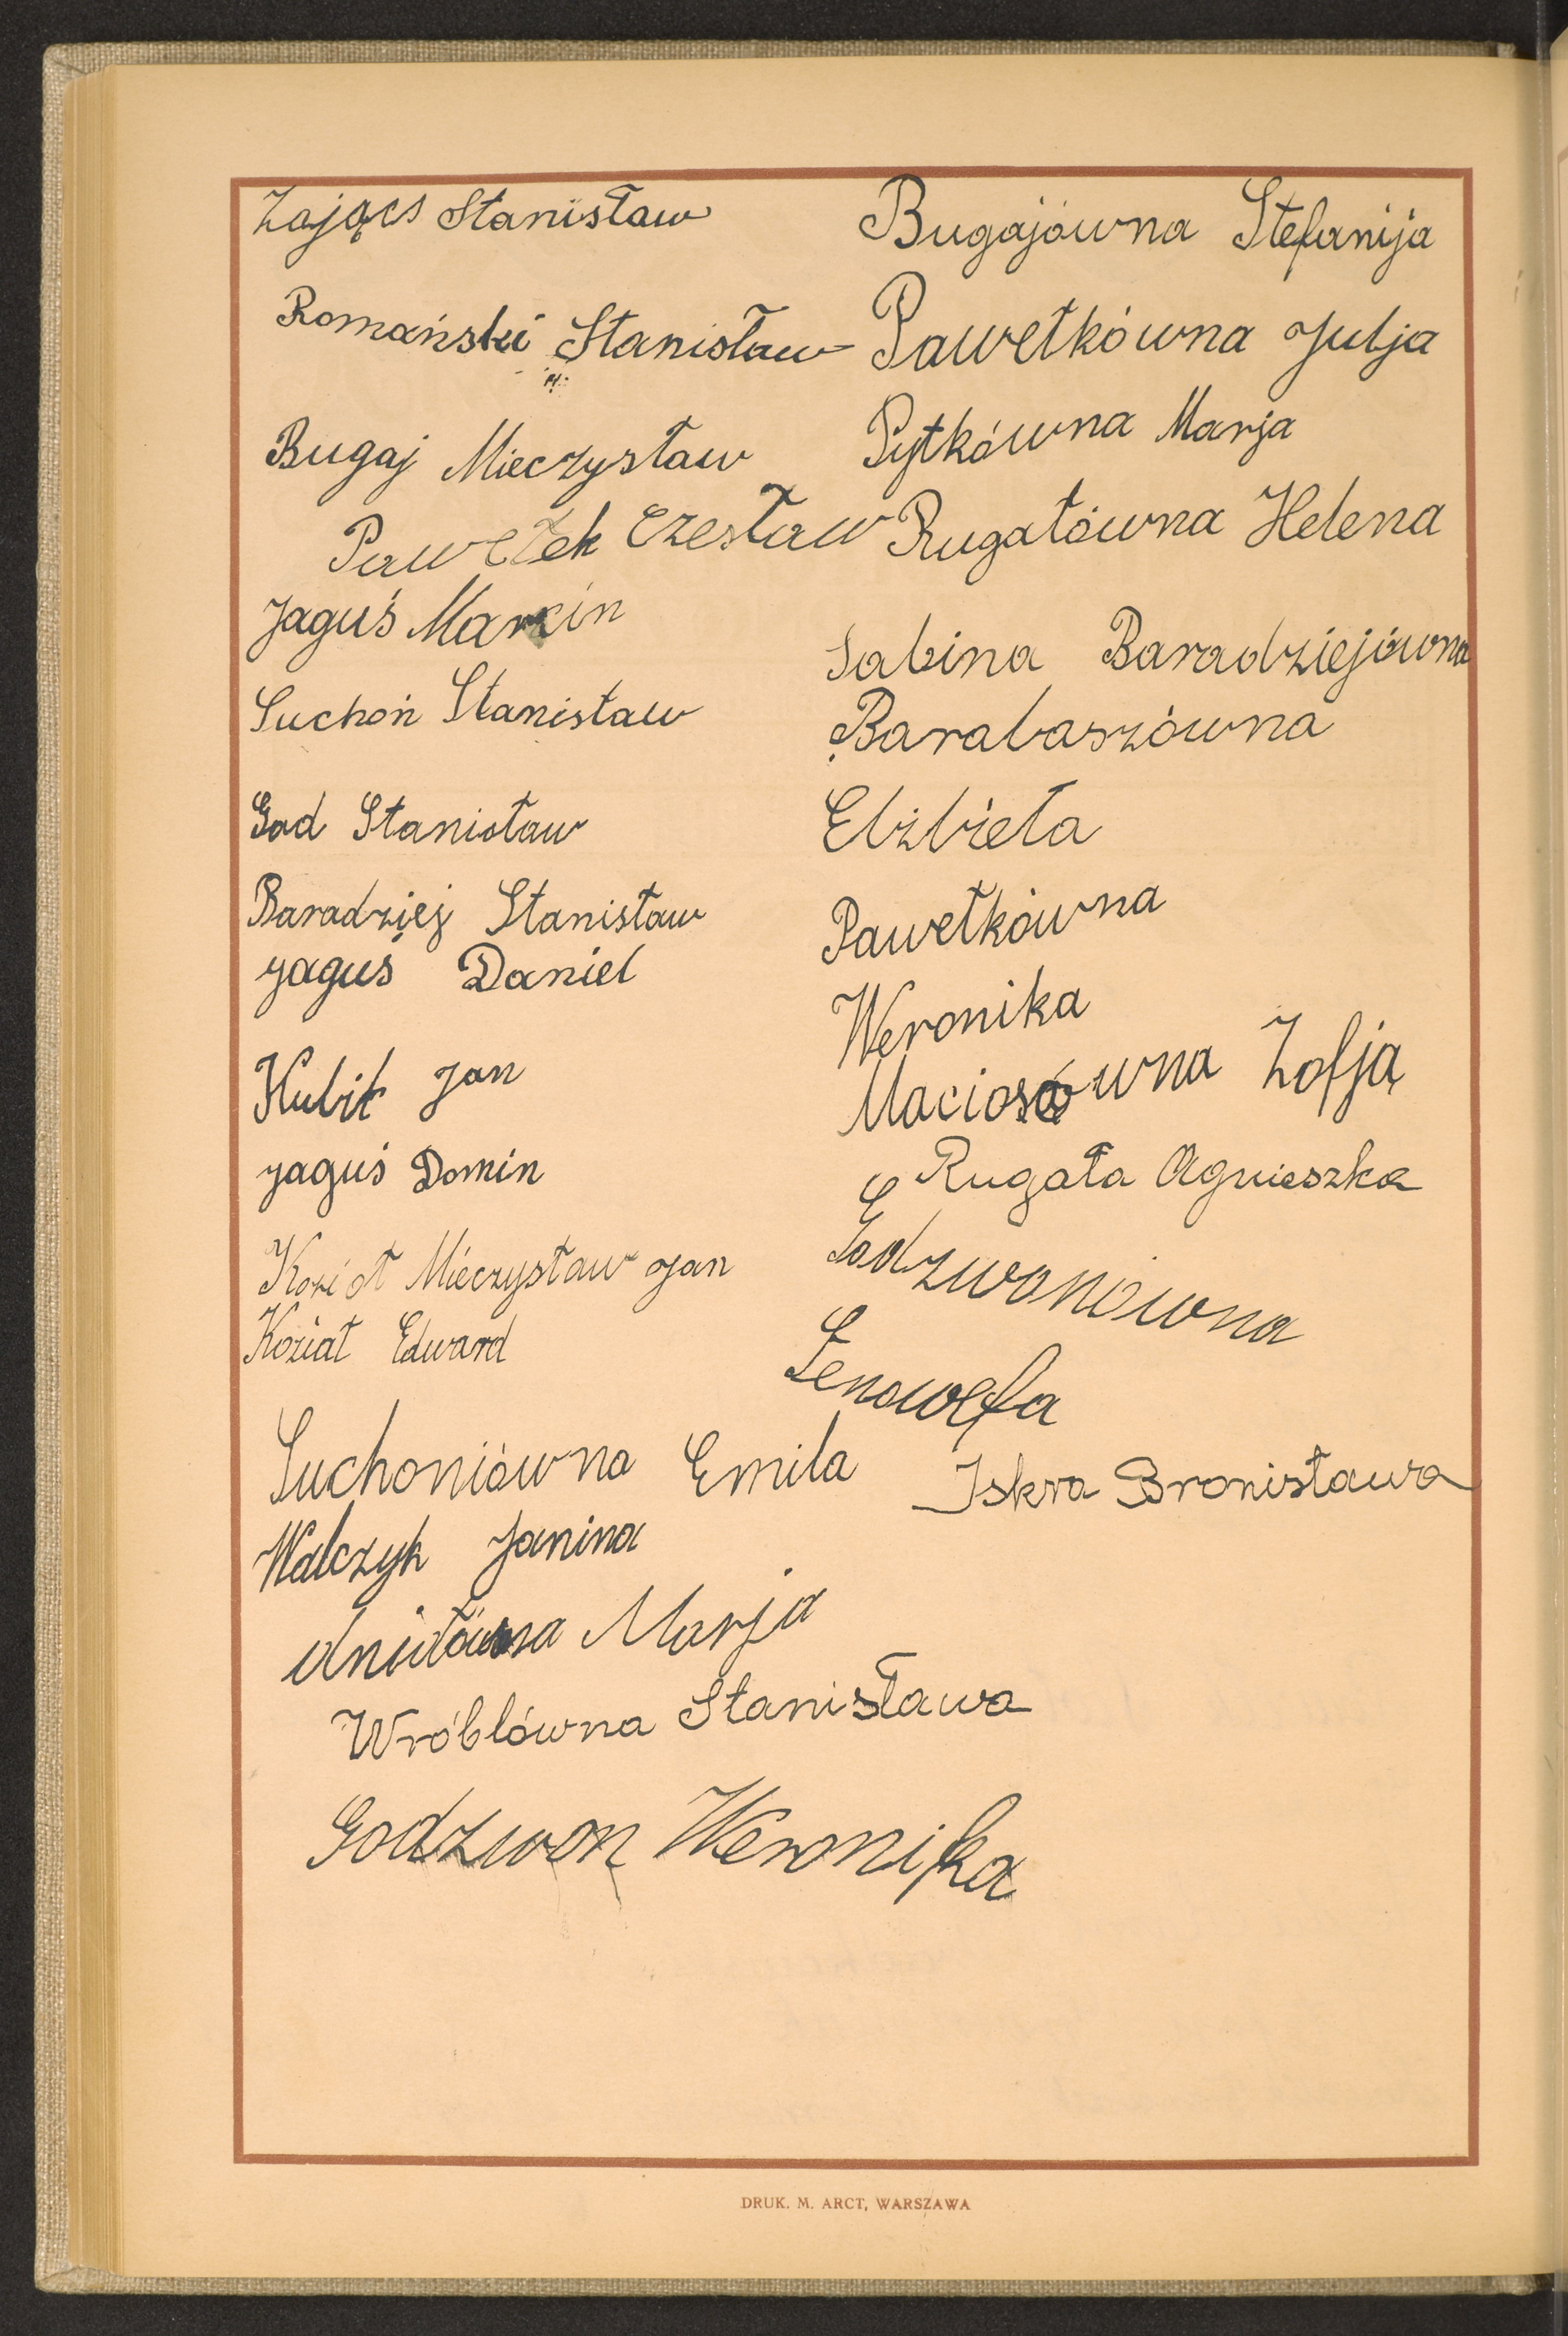 Zającs Stanisław
Romański Stanisław
Bugaj Mieczysław
Pawełek Czesław
Jaguś Marcin
Suchoń Stanisław
God Stanisław
Baradziej Stanisław
Jaguś Daniel
Kubik Jan
Jaguś Domin
Kozioł Mieczysław Jan
Koziat Edward
Suchoniówna Emila
Walczyk Janina
Marja
Wróblówna Stanisława
Godzwon Weronika
Bugajówna Stefanija
Pawełkówna Julja
Pytkówna Marja
Rugałówna Helena
Sabina Baradziejówna
Barabaszówna
Elżbieta
Pawełkówna
Weronika
Maciosówna Zofją
Rugała Agnieszka
Godzwonówna
Genowefa
Iskra Bronisława
DRUK. M. ARCT, WARSZAWA